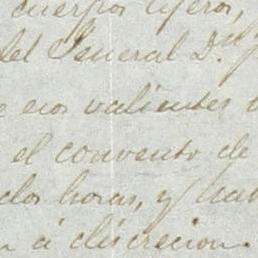 cuerpos ligeros,
del General D.
esos valientes
el convento de
dos horas, y
á discrecion.